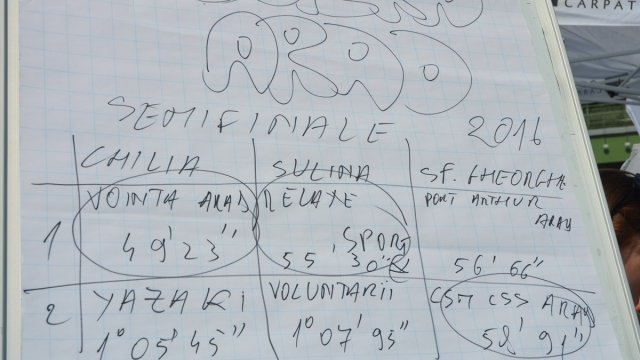 CARPAT
ARAD
SEMIFINALE 2016
CHILIA SULINA SF. GHEORGHE
1 VOINTA ARAD 49' 23"
RELAXE SPORT 55' 30"
PORT ARTHUR ARAD 56' 66"
2 YAZAKI 1° 05' 45"
VOLUNTARII 1° 07' 93"
CSM CSS ARAD 58' 91"